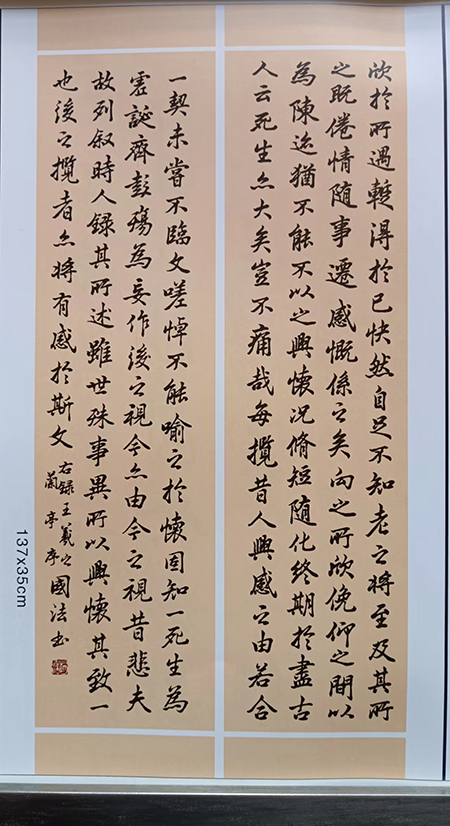 欣於所遇蹔得於己快然自足不知老之將至及其所
之既倦情随事遷感慨係之矣向之所欣俛仰之間以
為陳迹猶不能不以之興懷況脩短随化終期於盡古
人云死生亦大矣豈不痛哉每攬昔人興感之由若合
一契未嘗不臨文嗟悼不能喻之於懷固知一死生為
虛誕齊彭殤為妄作後之視今亦由今之視昔悲夫
故列叙時人録其所述雖世殊事異所以興懷其致一
也後之攬者亦將有感於斯文
右録王羲之
蘭亭序
國法书
137x35cm